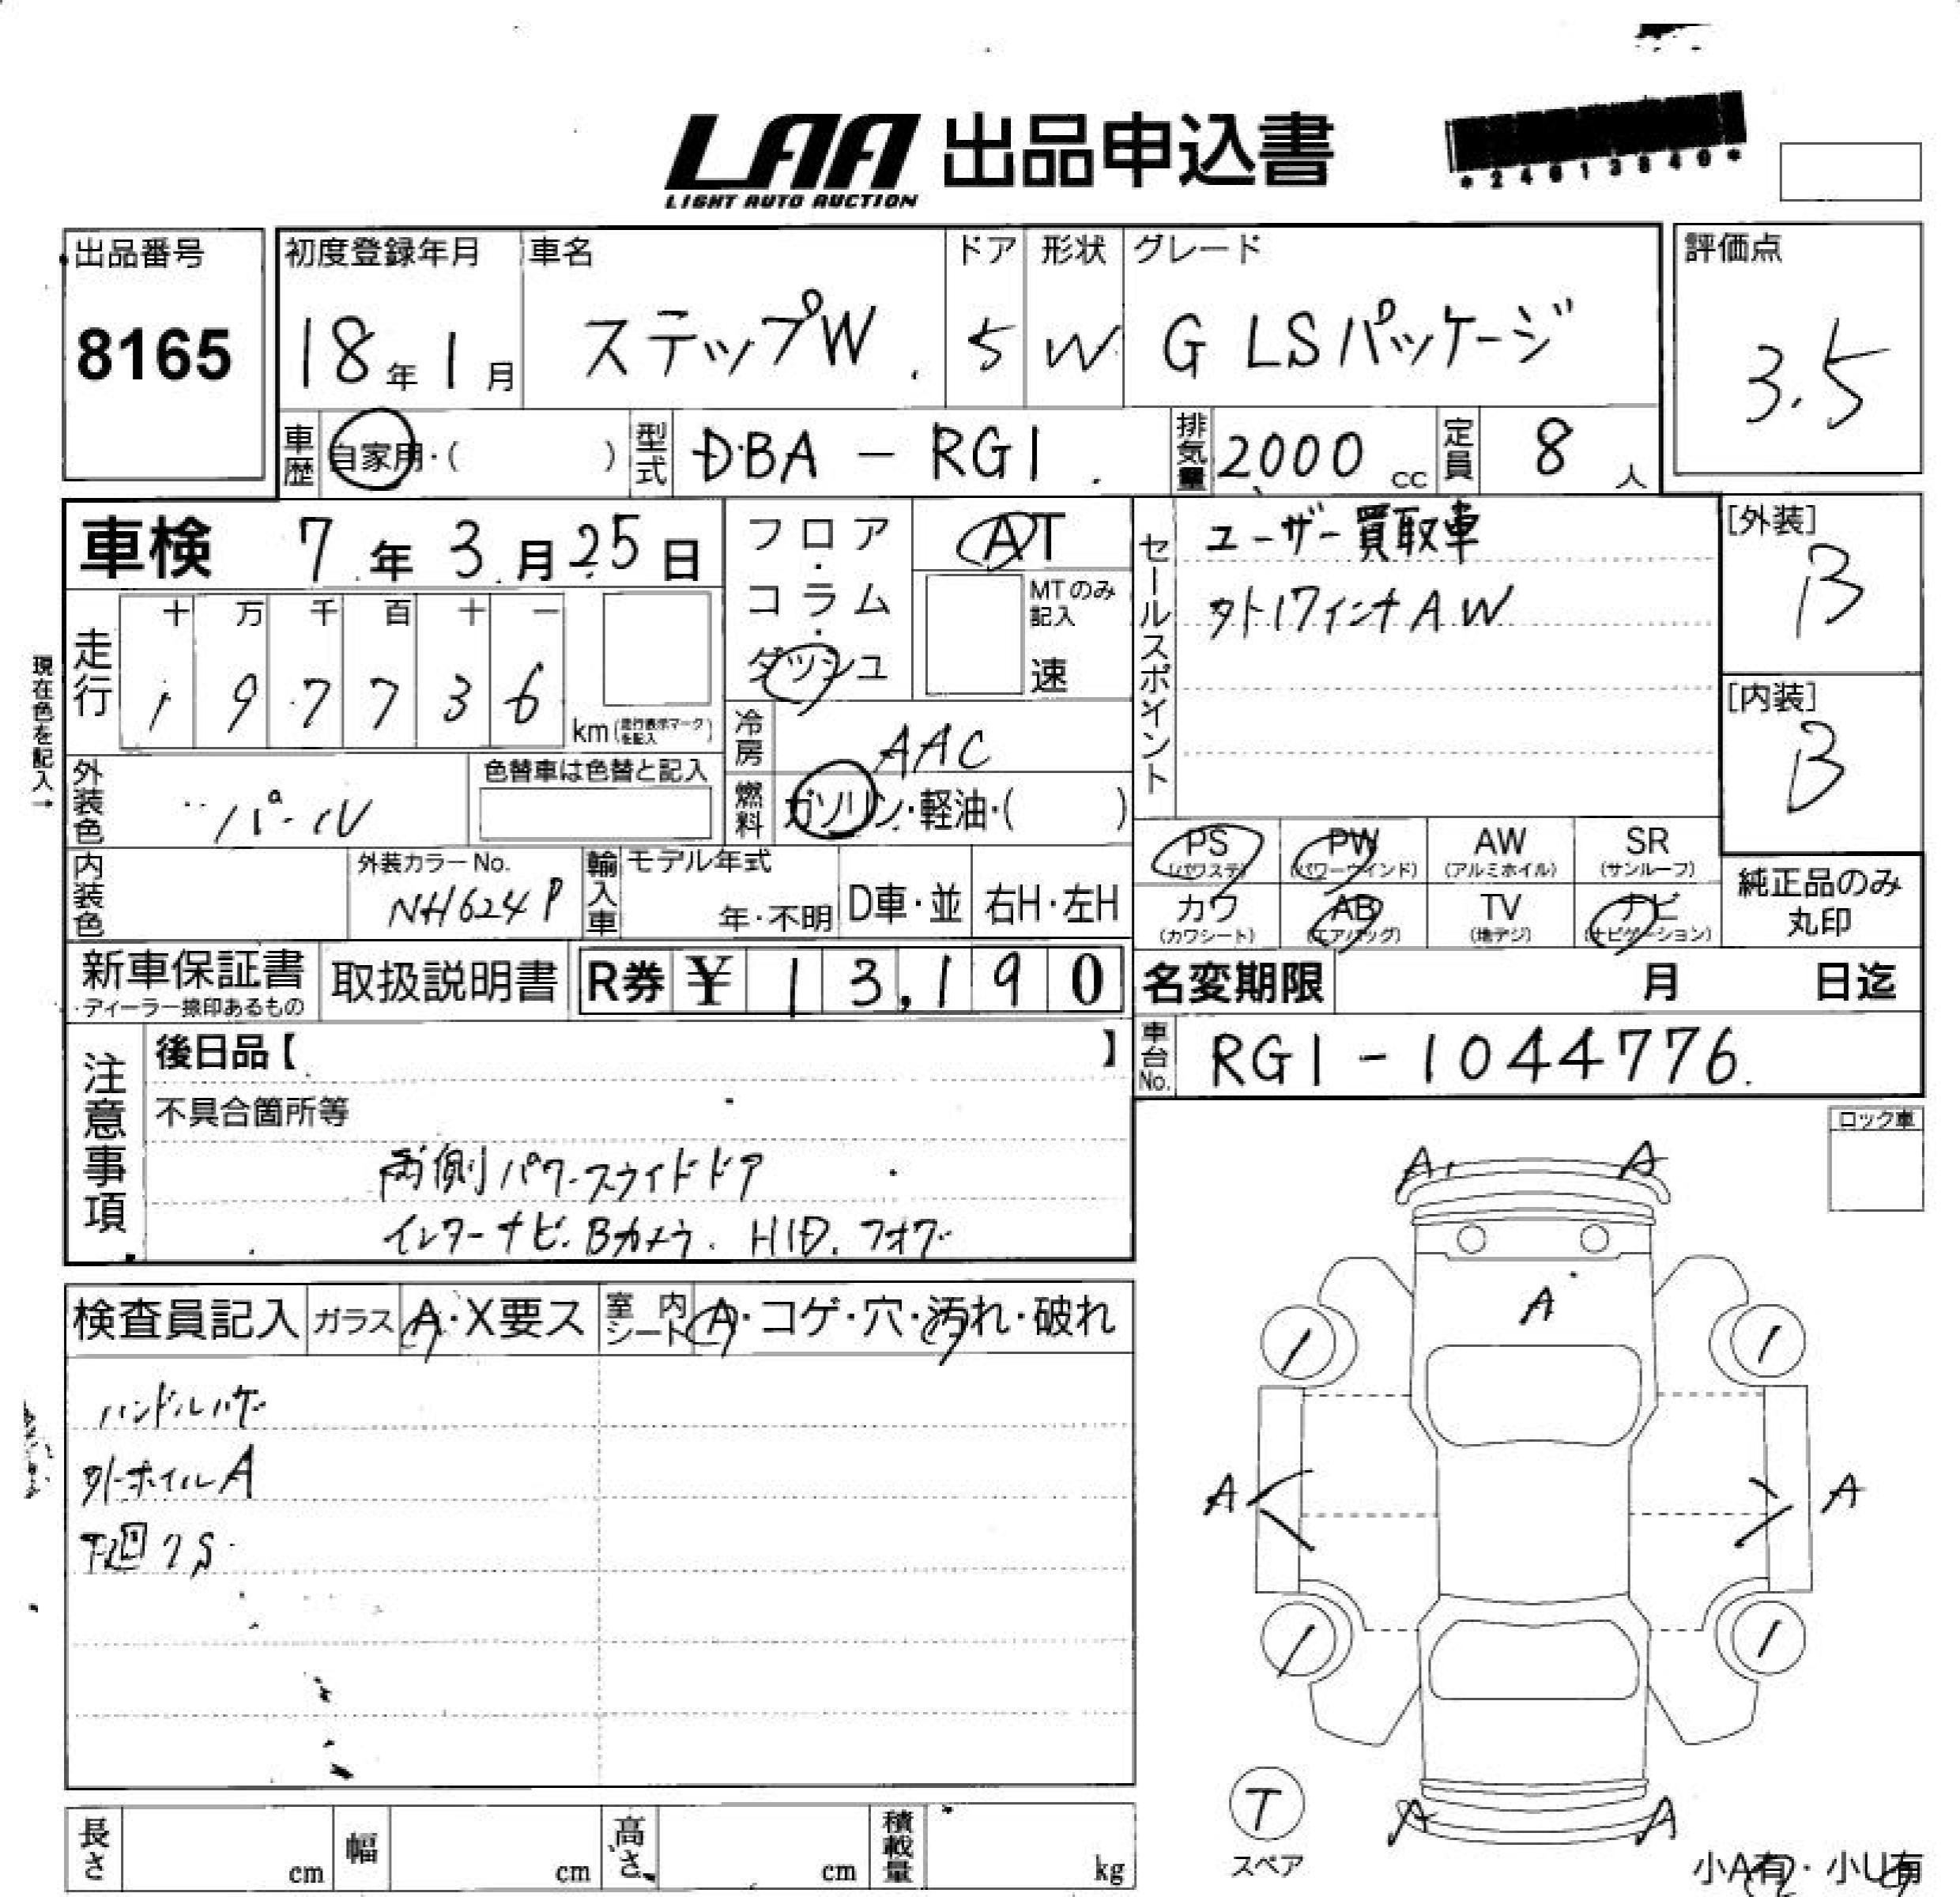 LAA 出品申込書
LIGHT AUTO AUCTION
*24013840*
出品番号 初度登録年月 車名 ドア 形状 グレード 評価点
8165 18年1月 ステップW. 5 W G LSパッケージ 3.5
車歴 自家用・( ) 型式 DBA - RG1. 排気量 2000cc 定員 8人
車検 7年3月25日
フロア・コラム・ダッシュ
AT
MTのみ記入
速
セールスポイント
ユーザー買取車
外17インチAW
[外装]
B
[内装]
B
現在色を記入→
走行 十 万 千 百 十 一
1 9 7 7 3 6 km(走行表示マークを記入)
冷房 AAC
外装色 パール 色替車は色替と記入
燃料 ガソリン・軽油・( )
PS (パワステ) PW (パワーウインド) AW (アルミホイル) SR (サンルーフ)
カワ (カワシート) AB (エアバッグ) TV (地デジ) ナビ (ナビゲーション)
純正品のみ丸印
内装色 外装カラーNo. NH624P 輸入車 モデル年式 年・不明 D車・並 右H・左H
新車保証書 ・ディーラー捺印あるもの 取扱説明書 R券 ¥ 13,190
名変期限 月 日迄
車台No. RG1-1044776.
注意事項
後日品【 】
不具合箇所等
両側パワースライドドア
インターナビ. Bカメラ. HID. フォグ
ロック車
検査員記入 ガラス A・X要ス 室内シート A・コゲ・穴・汚れ・破れ
ハンドルハゲ
外ホイルA
下廻りS
A A
A
A A
A A
T
スペア
小A有・小U有
長さ cm 幅 cm 高さ cm 積載量 kg